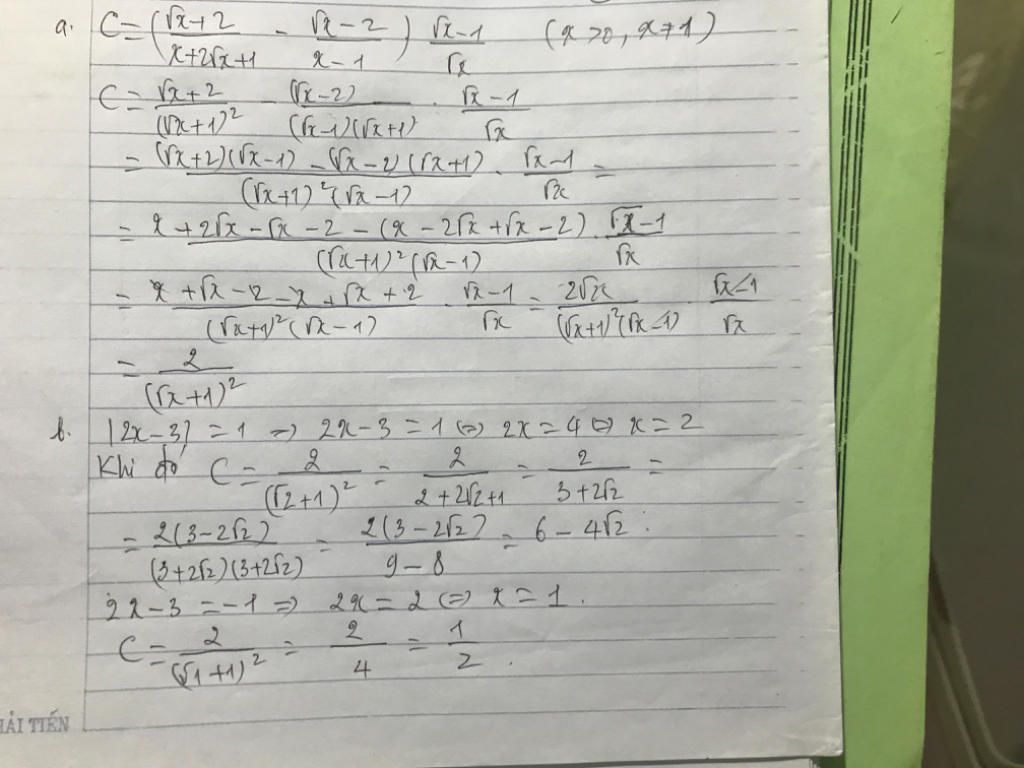 a. C = (√x+2 / x+2√x+1 - √x-2 / x-1) √x-1 / √x (x>0, x≠1)
C = √x+2 / (√x+1)² - (√x-2) / (√x-1)(√x+1) . √x-1 / √x
= (√x+2)(√x-1) - (√x-2)(√x+1) / (√x+1)²(√x-1) . √x-1 / √x =
= x+2√x-√x-2-(x-2√x+√x-2) / (√x+1)²(√x-1) . √x-1 / √x
= x+√x-2-x+√x+2 / (√x+1)²(√x-1) . √x-1 / √x = 2√x / (√x+1)²(√x-1) . √x-1 / √x
= 2 / (√x+1)²
b. |2x-3| = 1 => 2x-3 = 1 <=> 2x = 4 <=> x = 2
Khi đó C = 2 / (√2+1)² = 2 / 2+2√2+1 = 2 / 3+2√2 =
= 2(3-2√2) / (3+2√2)(3+2√2) = 2(3-2√2) / 9-8 = 6-4√2.
2x-3 = -1 => 2x = 2 <=> x = 1.
C = 2 / (√1+1)² = 2 / 4 = 1 / 2.
HẢI TIẾN